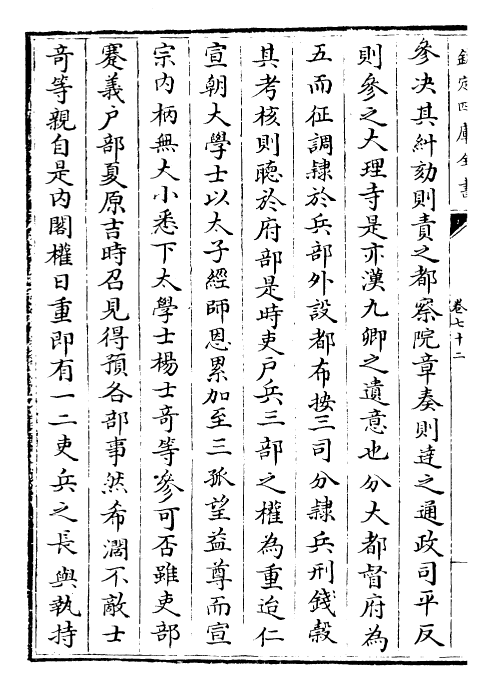 欽定四庫全書
卷七十二
參决其糾劾則責之都察院章奏則達之通政司平反
則參之大理寺是亦漢九卿之遺意也分大都督府為
五而征調隸於兵部外設都布按三司分隸兵刑錢榖
其考核則聽於府部是時吏戶兵三部之權為重迨仁
宣朝大學士以太子經師恩累加至三孤望益尊而宣
宗內柄無大小悉下太學士楊士竒等參可否雖吏部
蹇義戶部夏原吉時召見得預各部事然希濶不敵士
竒等親自是內閣權日重即有一二吏兵之長與執持